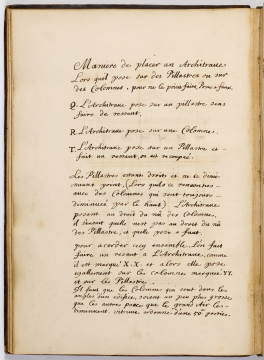 Maniere de placer un Architrave
Lors quil pose sur des Pillastres ou sur
des Colonnes, pour ne le point faire Poser a faux.
Q. L'Architrave pose sur un pillastre sans
faire de ressaut.
R. L'Architrave pose sur une Colonne.
T. L'Architrave pose sur un Pillastre et
fait un ressaut, ou est recoupé.
Les Pillastres estant droits et ne se dimi-
nuant point, (Lors quils se rencontrent
avec des Colonnes qui sont toujours
diminuées par le haut) L'Architrave
posant au droit du nû des Colonnes,
il s'ensuit quelle n'est pas au droit du nû
des Pillastres, et quelle pose a faux.
pour acorder cecy ensemble, L'on fait
faire un ressaut a L'Architrave, comme
il est marqué X.X. et alors elle pose
egallement sur les colonnes marquée YY.
et sur les Pillastres.
Il faut que les Colonnes qui sont dans les
angles d'un edifice, soient un peu plus grosse
que les autres parce que le grand air les
diminuent, vitruve ordonne d'une 50 partie.